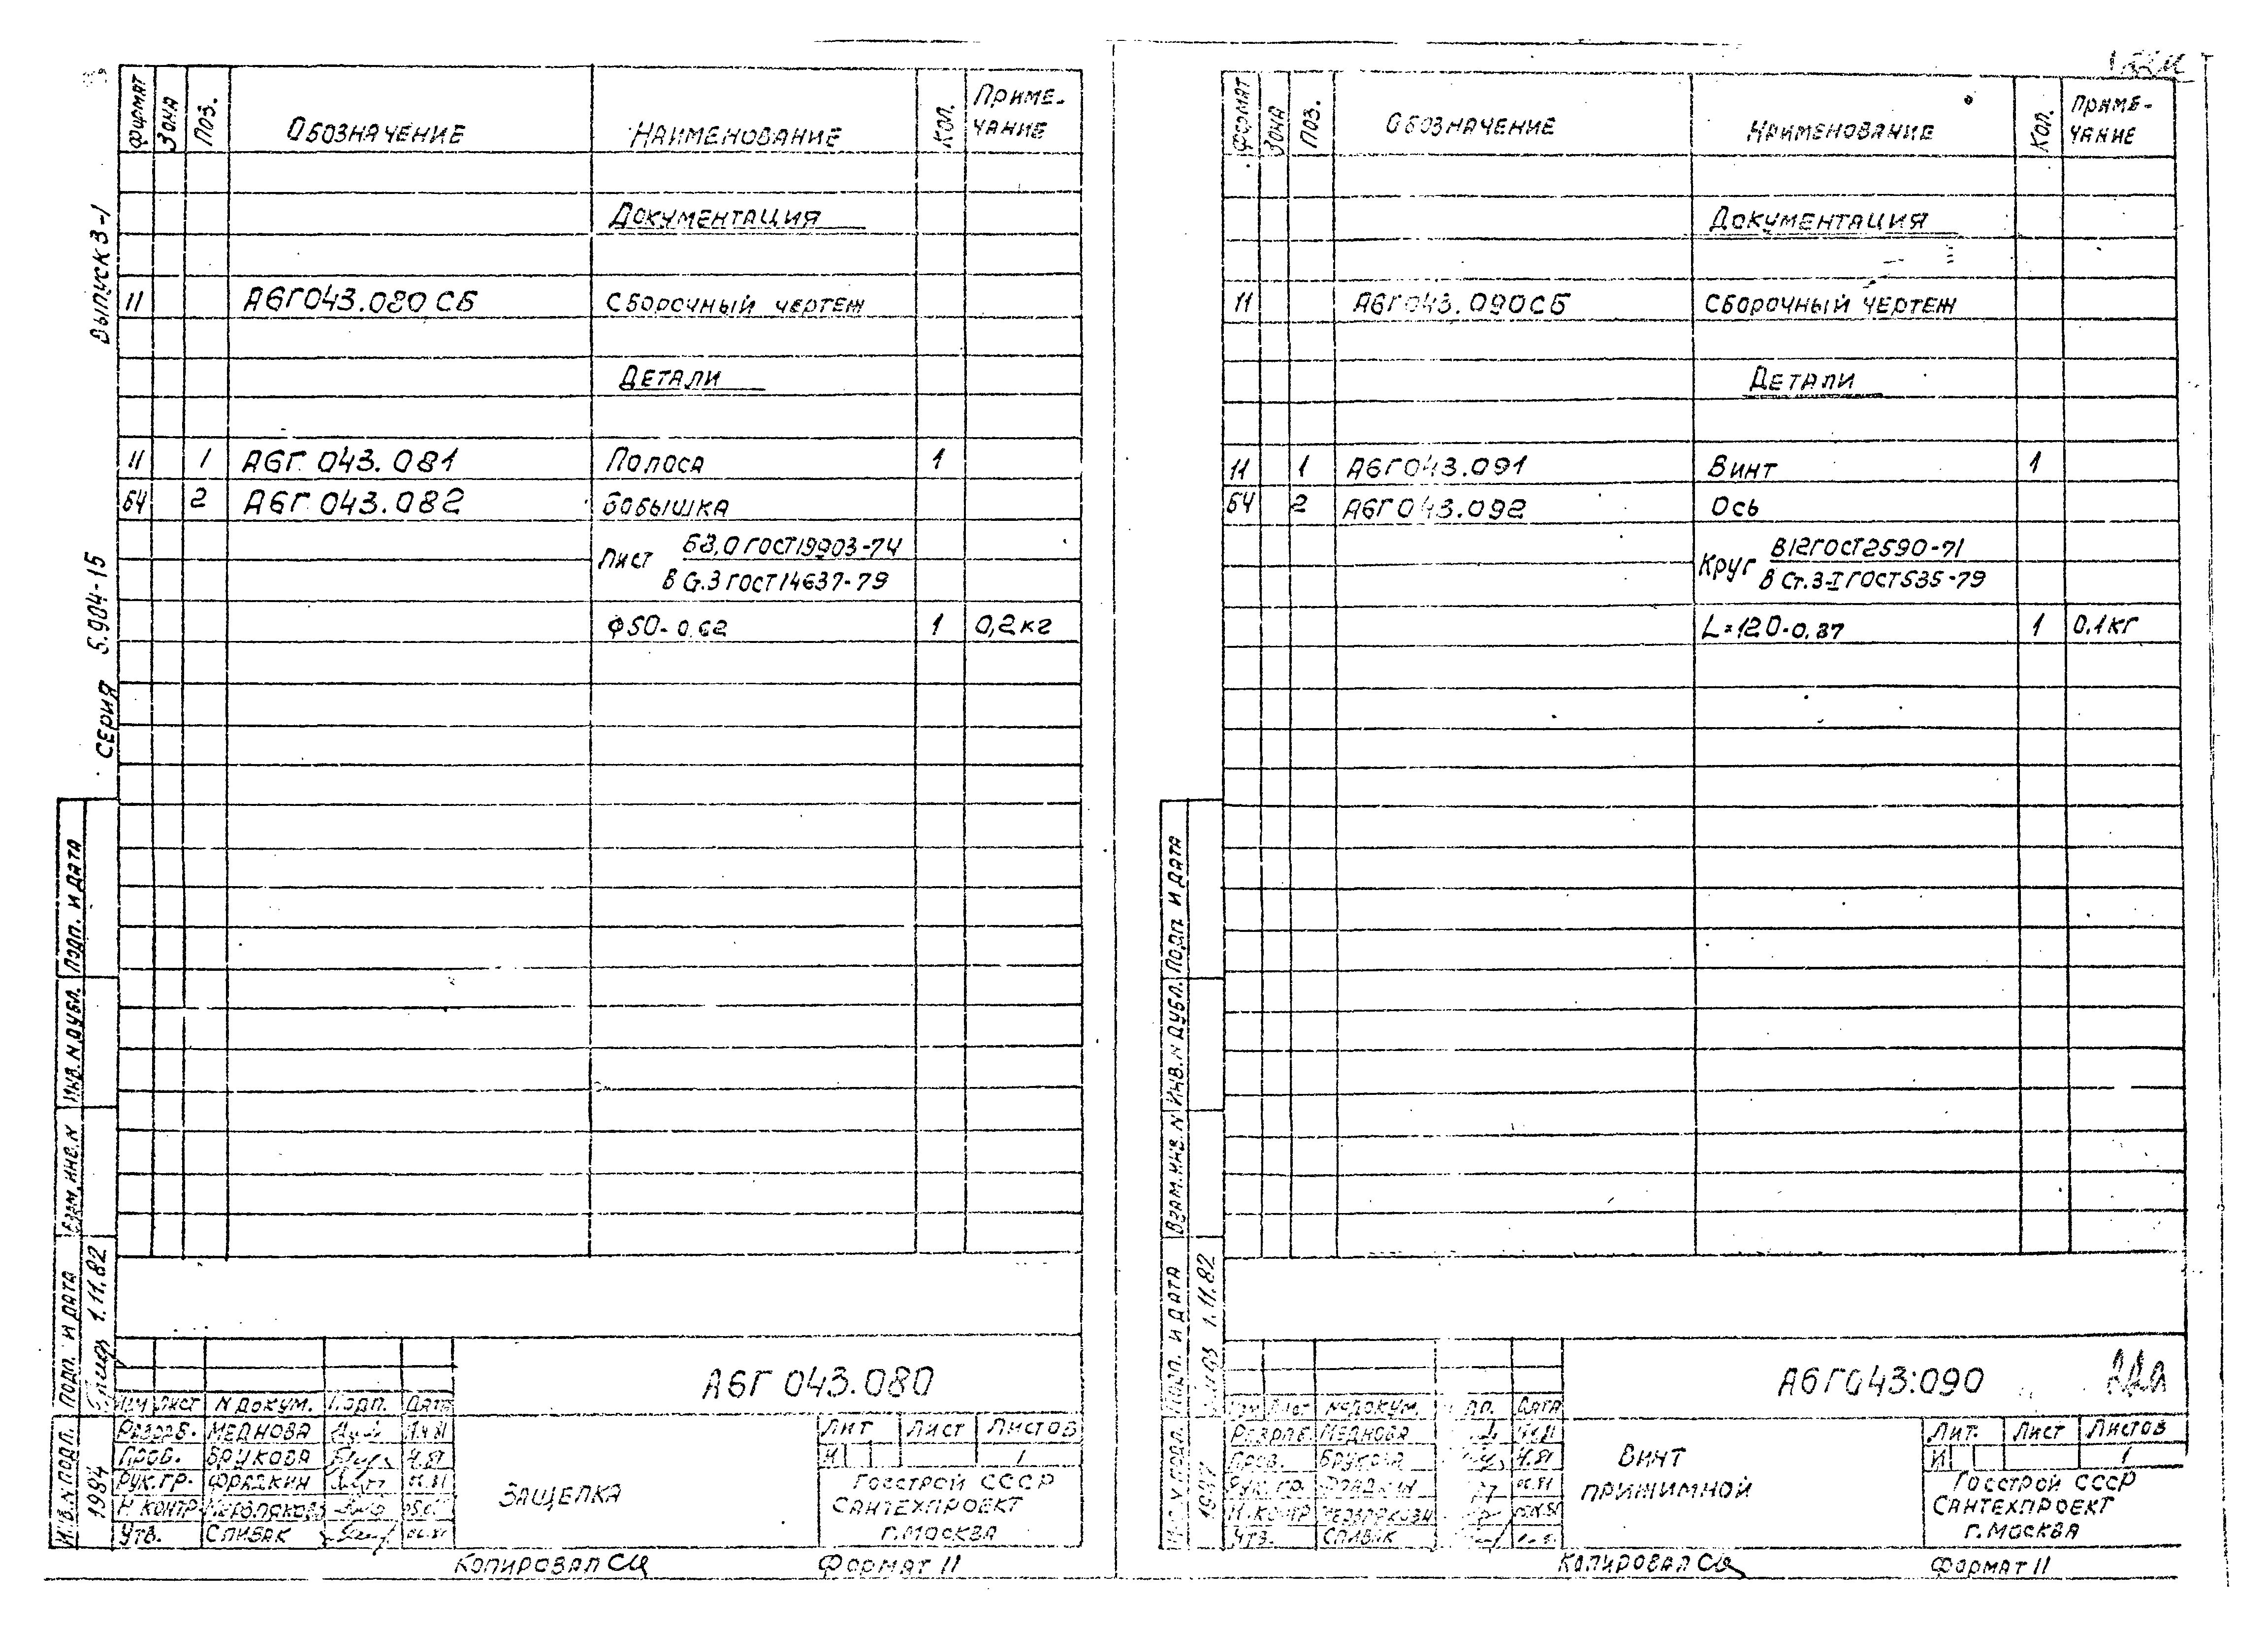 Формат Зона Поз. Обозначение Наименование Кол. Приме-
чание
Документация
11 А6Г043.080СБ Сборочный чертеж
Детали
11 1 А6Г 043.081 Полоса 1
БЧ 2 А6Г 043.082 Бобышка
Лист
ГОСТ19903-74
В Ст.3 ГОСТ14637-79
Ф50-0,62 1 0,2кг
Выпуск 3-1
Серия 5.904-15
Подп. и дата
Инв.N дубл.
Взам.инв.N
Подп. и дата
1.11.82
Инв.N подл.
1984
А6Г 043.080
Изм Лист N докум. Подп. Дата
Разраб. Меднова
Пров. Брукова
Рук.гр. Фрадкин
Н контр
Утв. Спивак
Защелка
Лит Лист Листов
И 1
Госстрой СССР
Сантехпроект
г.Москва
Копировал
Формат 11
Формат Зона Поз. Обозначение Наименование Кол. Приме-
чание
Документация
11 А6Г043.090СБ Сборочный чертеж
Детали
11 1 А6Г043.091 Винт 1
БЧ 2 А6Г043.092 Ось
Круг
В12ГОСТ2590-71
В Ст.3-I ГОСТ535-79
L=120-0,87 1 0,1кг
Подп. и дата
Инв.N дубл.
Взам.инв.N
Подп. и дата
1.11.82
А6Г043.090
22а
Изм Лист N докум. Дата
Разраб. Меднова
Пров. Брукова
Рук.гр. Фрадкин
Н.контр
Утв. Спивак
Винт
прижимной
Лит. Лист Листов
И 1
Госстрой СССР
Сантехпроект
г.Москва
Копировал
Формат 11